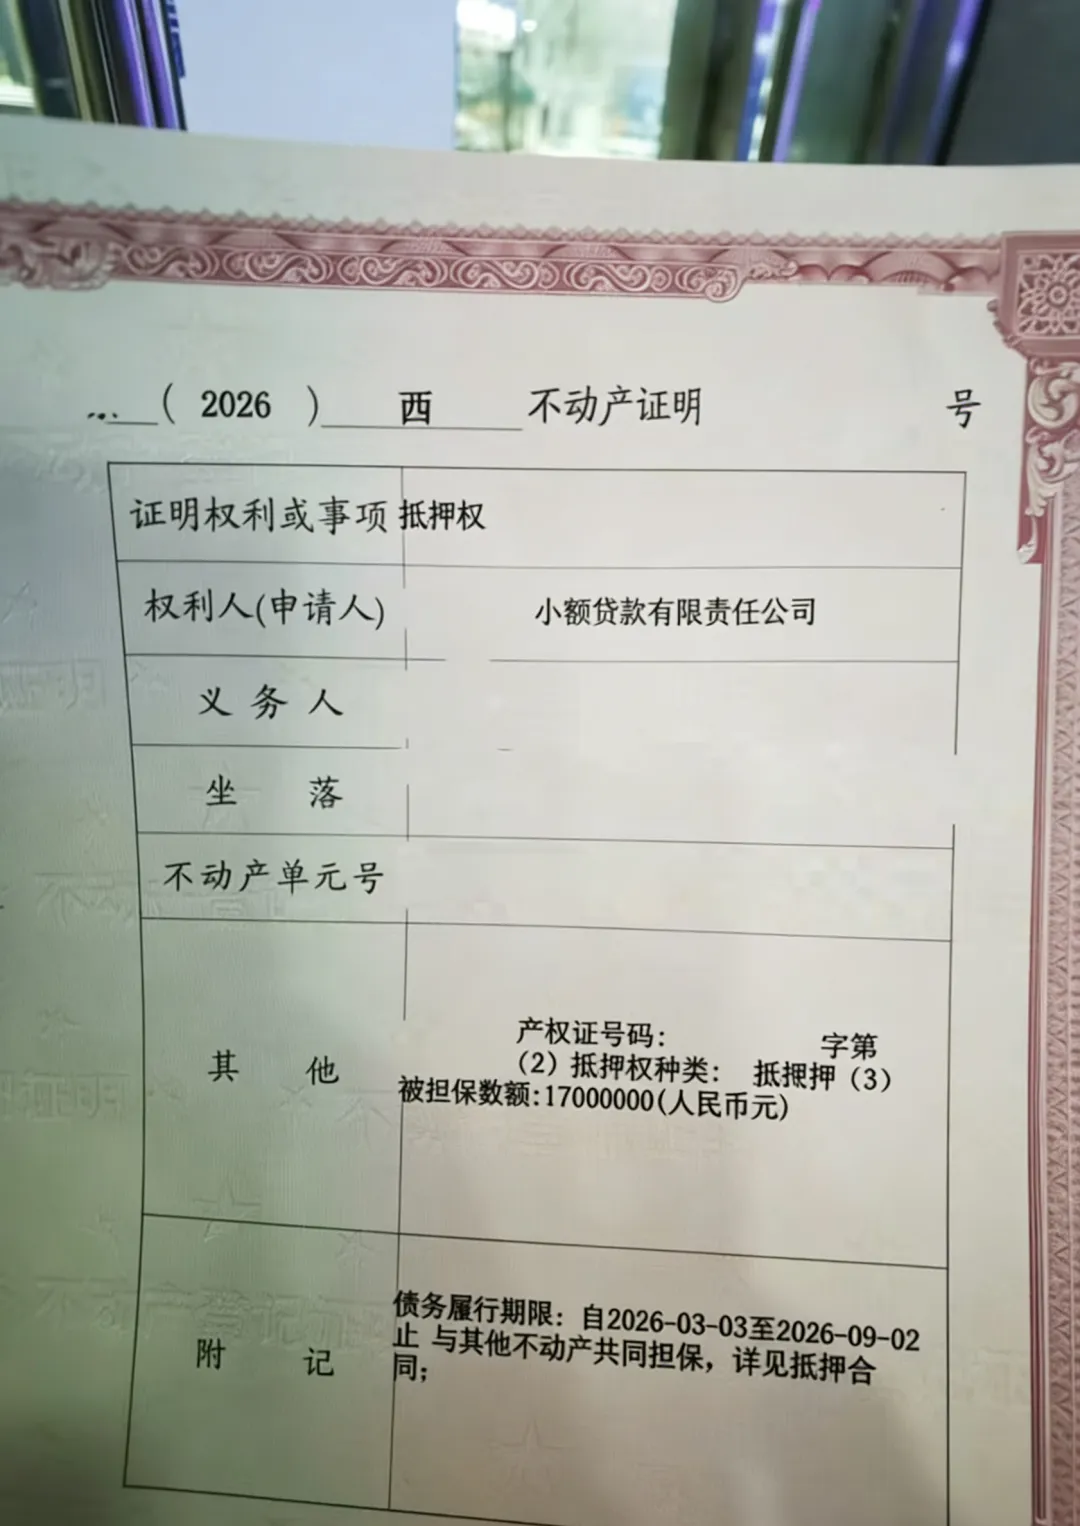 （ 2026 ） 西 不动产证明 号
证明权利或事项 抵押权
权利人(申请人) 小额贷款有限责任公司
义务人
坐落
不动产单元号
其他
产权证号码： 字第
（2）抵押权种类： 抵押押（3）
被担保数额:17000000(人民币元)
附记
债务履行期限：自2026-03-03至2026-09-02
止 与其他不动产共同担保，详见抵押合
同；